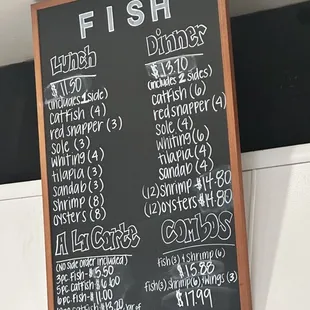 FISH
Lunch
$11.50
(includes 1 side)
catfish (4)
red snapper (3)
sole (3)
whiting (4)
tilapia (3)
sandab (3)
shrimp (8)
oysters (8)
Dinner
$13.70
(includes 2 sides)
catfish (6)
red snapper (4)
sole (4)
whiting (6)
tilapia (4)
sandab (4)
(12) shrimp $14.80
(12) oysters $14.80
A La Carte
(No side order included)
3pc Fish-$5.50
5pc catfish $6.60
6pc Fish-$11.00
catfish $13.20
COMBOS
fish(3) shrimp(6)
$15.88
fish(3) shrimp(6) wings(3)
$17.99